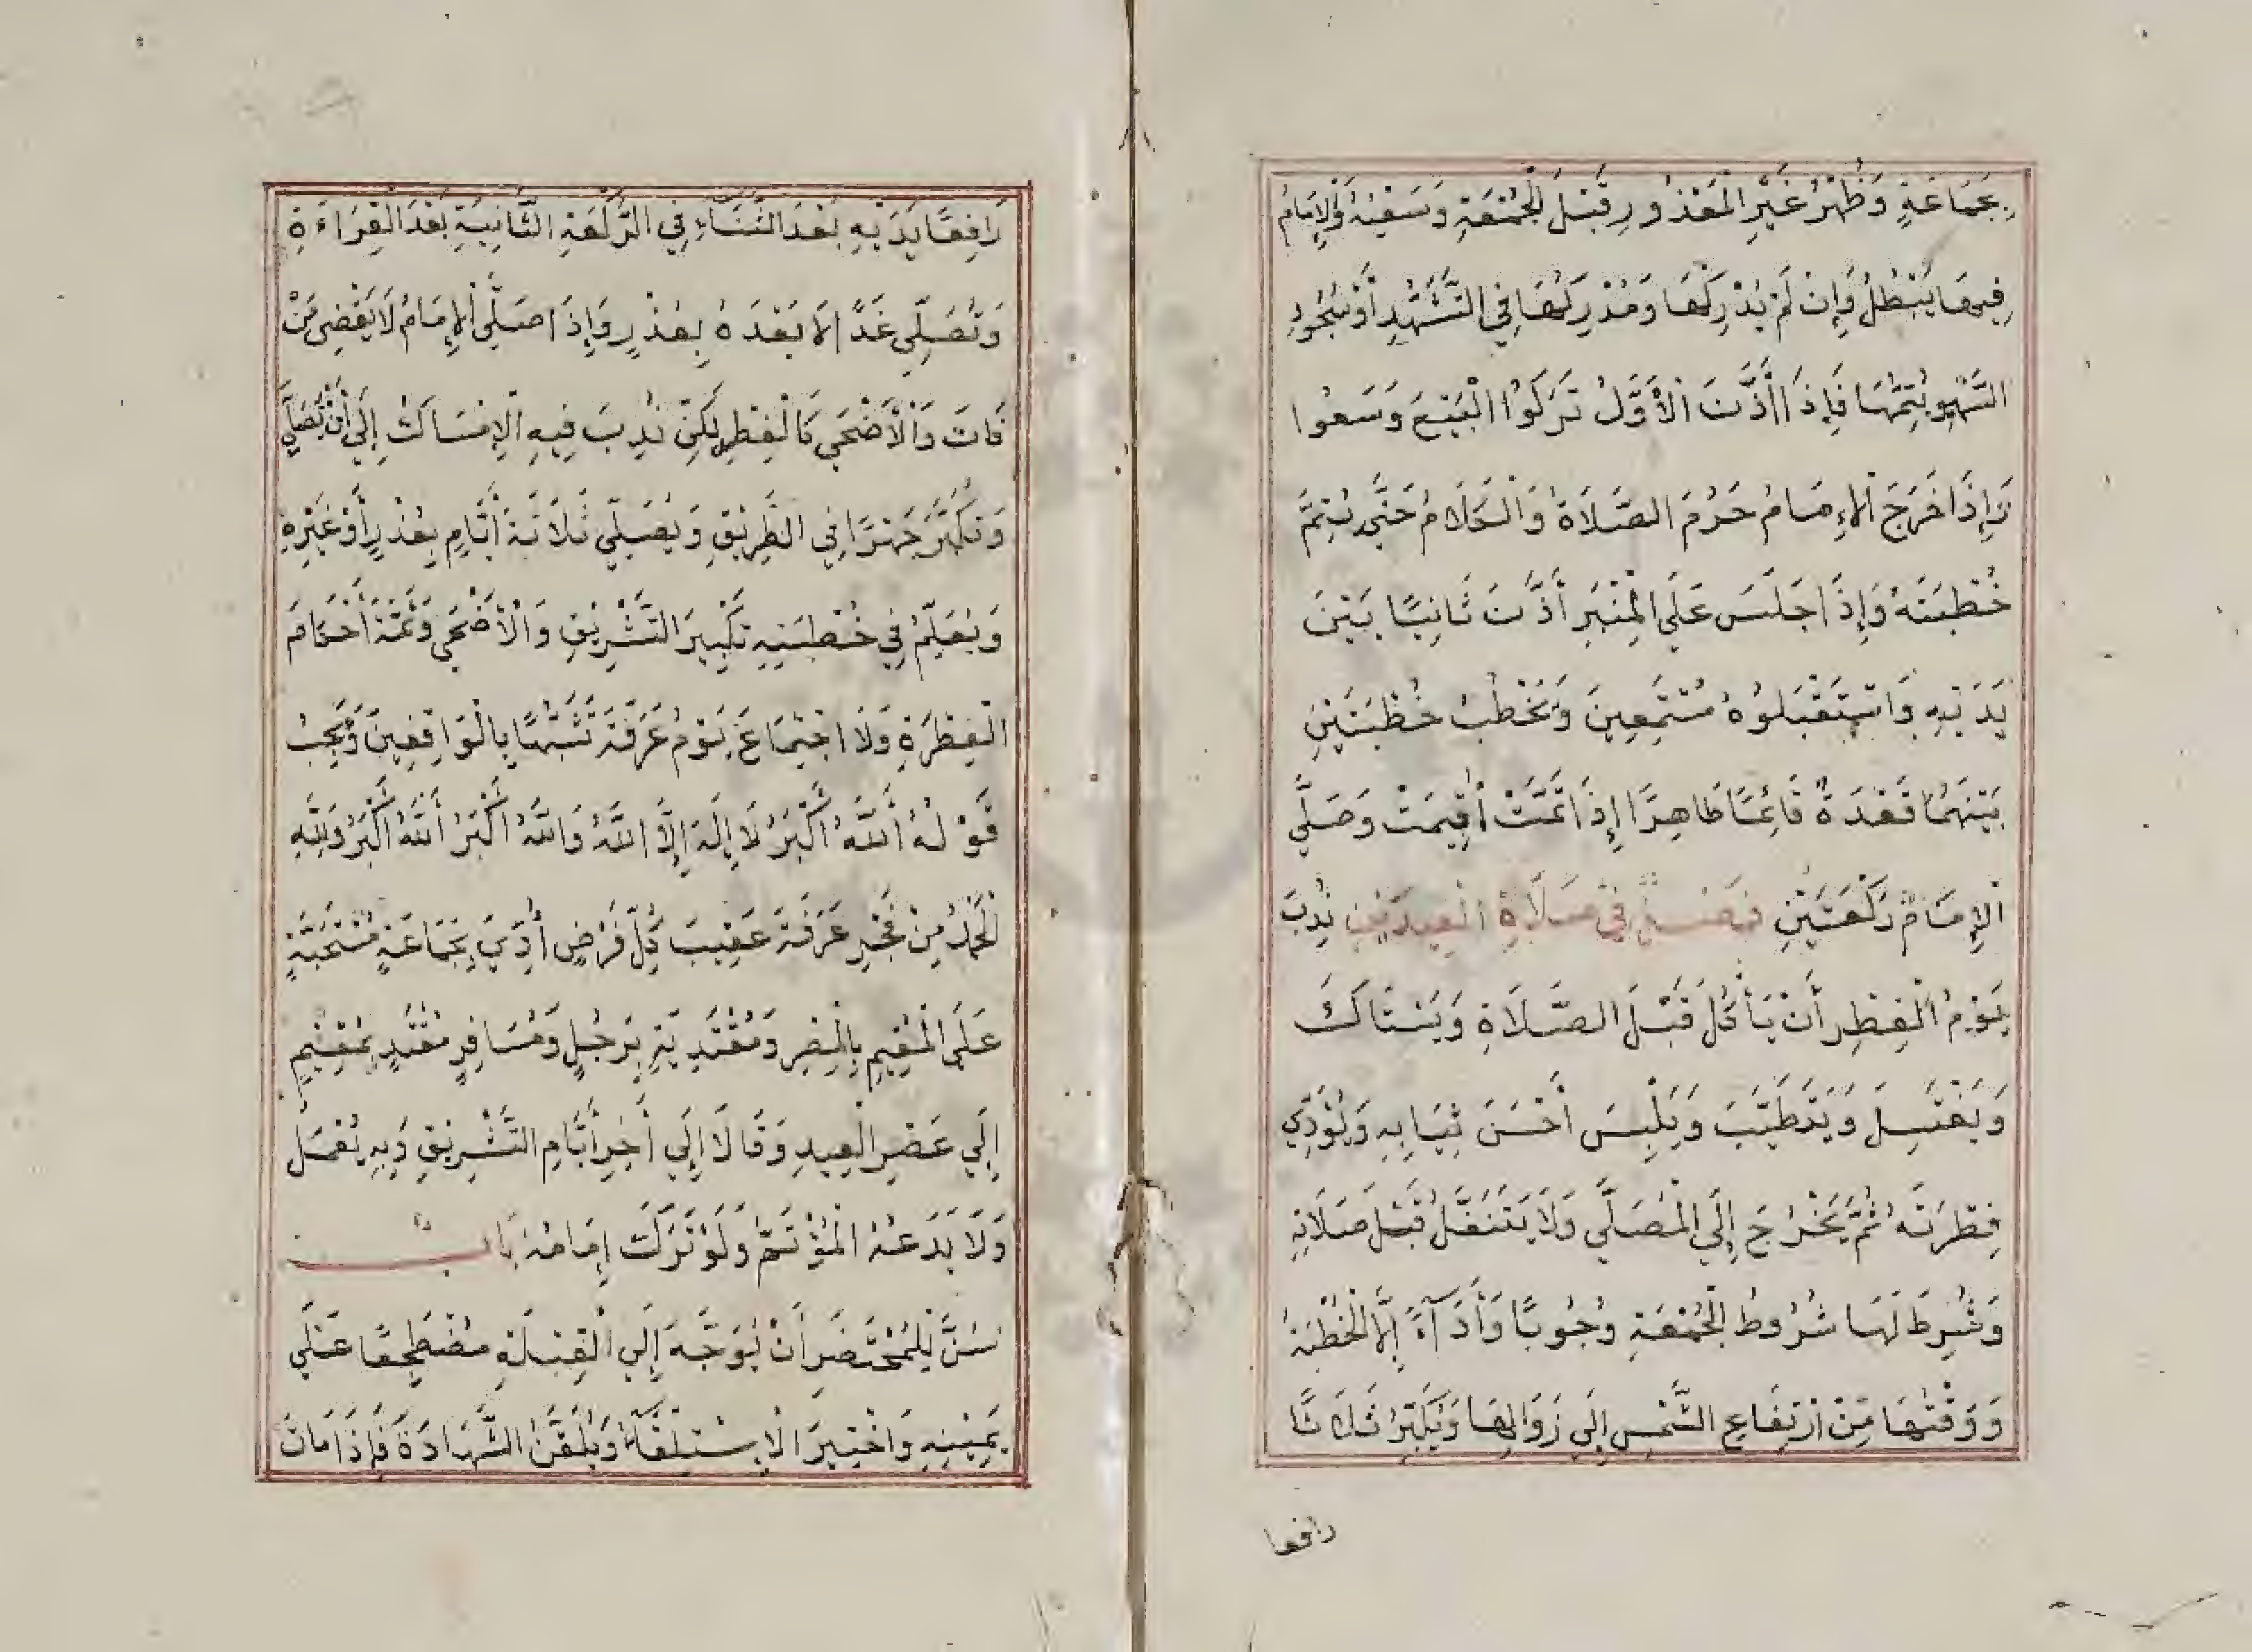 بِجَمَاعَةٍ وَظُهْرُ غَيْرِ الْمَعْذُورِ قَبْلَ الْجُمْعَةِ وَسَعْيُهُ وَالْإِمَامُ
فِيهَا يُبْطِلُ وَإِنْ لَمْ يُدْرِكْهَا وَمُدْرِكُهَا فِي التَّشَهُّدِ أَوْ سُجُودِ
السَّهْوِ يُتِمُّهَا فَإِذَا أَذَّنَ الْأَوَّلُ تَرَكُوا الْبَيْعَ وَسَعَوْا
وَإِذَا خَرَجَ الْإِمَامُ حَرُمَ الصَّلَاةُ وَالْكَلَامُ حَتَّى يُتِمَّ
خُطْبَتَهُ وَإِذَا جَلَسَ عَلَى الْمِنْبَرِ أَذَّنَ ثَانِيًا بَيْنَ
يَدَيْهِ وَاسْتَقْبَلُوهُ مُسْتَمِعِينَ وَيَخْطُبُ خُطْبَتَيْنِ
بَيْنَهُمَا قَعْدَةٌ قَائِمًا طَاهِرًا إِذَا تَمَّتْ أُقِيمَتْ وَصَلَّى
الْإِمَامُ رَكْعَتَيْنِ فَصْلٌ فِي صَلَاةِ الْعِيدَيْنِ نُدِبَ
يَوْمُ الْفِطْرِ أَنْ يَأْكُلَ قَبْلَ الصَّلَاةِ وَيَسْتَاكَ
وَيَغْتَسِلَ وَيَتَطَيَّبَ وَيَلْبَسَ أَحْسَنَ ثِيَابِهِ وَيُؤَدِّي
فِطْرَتَهُ ثُمَّ يَخْرُجَ إِلَى الْمُصَلَّى وَلَا يَتَنَفَّلُ قَبْلَ صَلَاتِهِ
وَشُرِطَ لَهَا شُرُوطُ الْجُمْعَةِ وُجُوبًا وَأَدَاءً إِلَّا الْخُطْبَةُ
وَوَقْتُهَا مِنْ ارْتِفَاعِ الشَّمْسِ إِلَى زَوَالِهَا وَيُكَبِّرُ ثَلَاثًا
رافعا
رَافِعًا يَدَيْهِ بَعْدَ الثَّنَاءِ فِي الرَّكْعَةِ الثَّانِيَةِ بَعْدَ الْقِرَاءَةِ
وَتُصَلِّى غَدًا لَا بَعْدَهُ بِعُذْرٍ وَإِذَا صَلَّى الْإِمَامُ لَا يَقْضِي مَنْ
فَاتَ وَالْأَضْحَى كَالْفِطْرِ لَكِنْ نُدِبَ فِيهِ الْإِمْسَاكُ إِلَى أَنْ يُصَلِّي
وَيُكَبِّرُ جَهْرًا فِي الطَّرِيقِ وَيُصَلِّي ثَلَاثَةَ أَيَّامٍ بِعُذْرٍ أَوْ غَيْرِهِ
وَيُعَلِّمُ فِي خُطْبَتِهِ تَكْبِيرَ التَّشْرِيقِ وَالْأَضْحَى وَثَمَّةَ أَحْكَامَ
الْفِطْرَةِ وَلَا اجْتِمَاعَ يَوْمُ عَرَفَةَ تَشَبُّهًا بِالْوَاقِفِينَ وَيَجِبُ
قَوْلُهُ أَللَّهُ أَكْبَرُ لَا إِلَهَ إِلَّا اللَّهُ وَاللَّهُ أَكْبَرُ أَللَّهُ أَكْبَرُ وَلِلَّهِ
الْحَمْدُ مِنْ فَجْرِ عَرَفَةَ عَقِيبَ كُلِّ فَرْضٍ أُدِّيَ بِجَمَاعَةٍ مُسْتَحَبَّةٍ
عَلَى الْمُقِيمِ بِالْمِصْرِ وَمُقْتَدِيَةٍ بِرَجُلٍ وَمُسَافِرٍ مُقْتَدٍ بِمُقِيمٍ
إِلَى عَصْرِ الْعِيدِ وَقَالَا إِلَى أَخِرِ أَيَّامِ التَّشْرِيقِ وَبِهِ يُعْمَلُ
وَلَا يَدَعُهُ الْمُؤْتَمُّ وَلَوْ تَرَكَ إِمَامُهُ بَاب
سُنَّ لِلْمُحْتَضَرِ أَنْ يُوَجَّهَ إِلَى الْقِبْلَةِ مُضْطَجِعًا عَلَى
يَمِينِهِ وَاخْتِيرَ الْإِسْتِلْقَاءُ وَيُلَقَّنُ الشَّهَادَةَ فَإِذَا مَاتَ